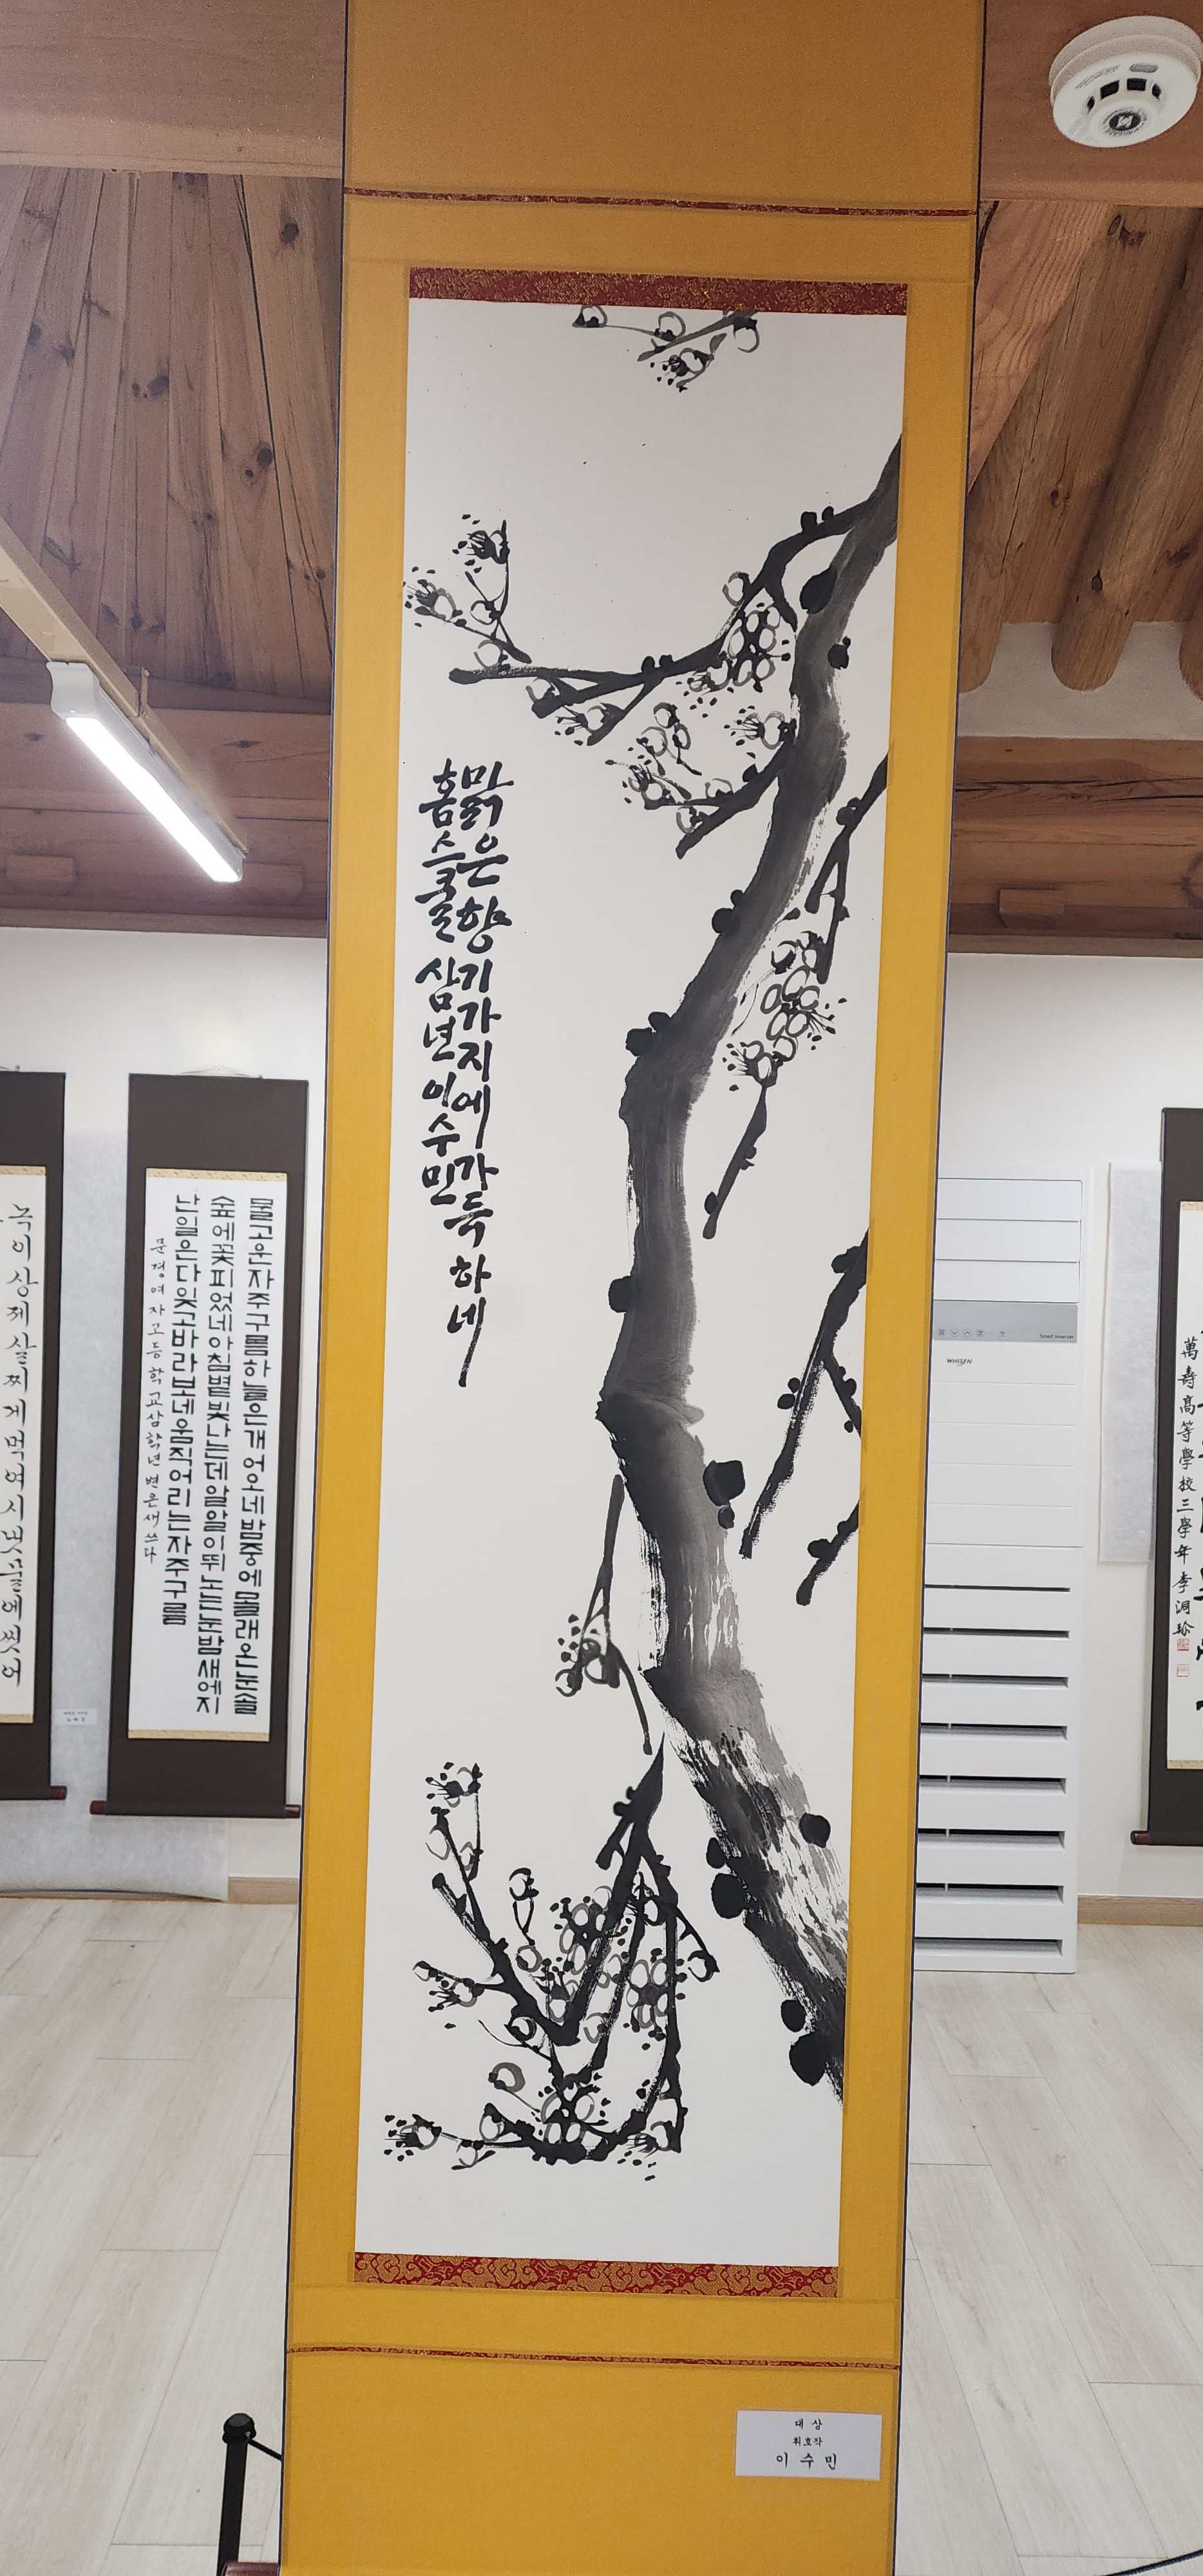 맑은 향기 가지에 가득 하네
홈스쿨 삼년 이수민
대상
휘호작
이수민
물고운자주구름하늘은개어오네밤중에몰래온눈솔
숲에꽃피었네아침볕빛나는데알알이뛰노는눈밤새에지
난일은다잊고바라보네움직어리는자주구름
문경여자고등학교삼학년 변은새 쓰다
녹이상제살찌게먹여시냇물에씻어
萬壽高等學校三學年李洞玲
Smart Inverter
WHISEN